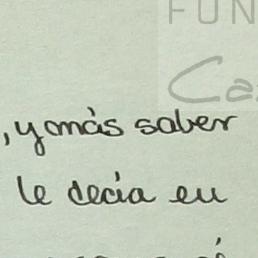 FUN
Ca
, y más saber
le decía en